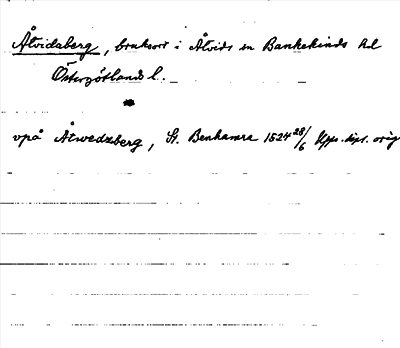 Åtvidaberg, bruksort i Åtvids sn Bankekinds hd
Östergötlands l.
upå Åtwedzberg, St. Benhamra 1524 28/6 Upps. dipl. orig